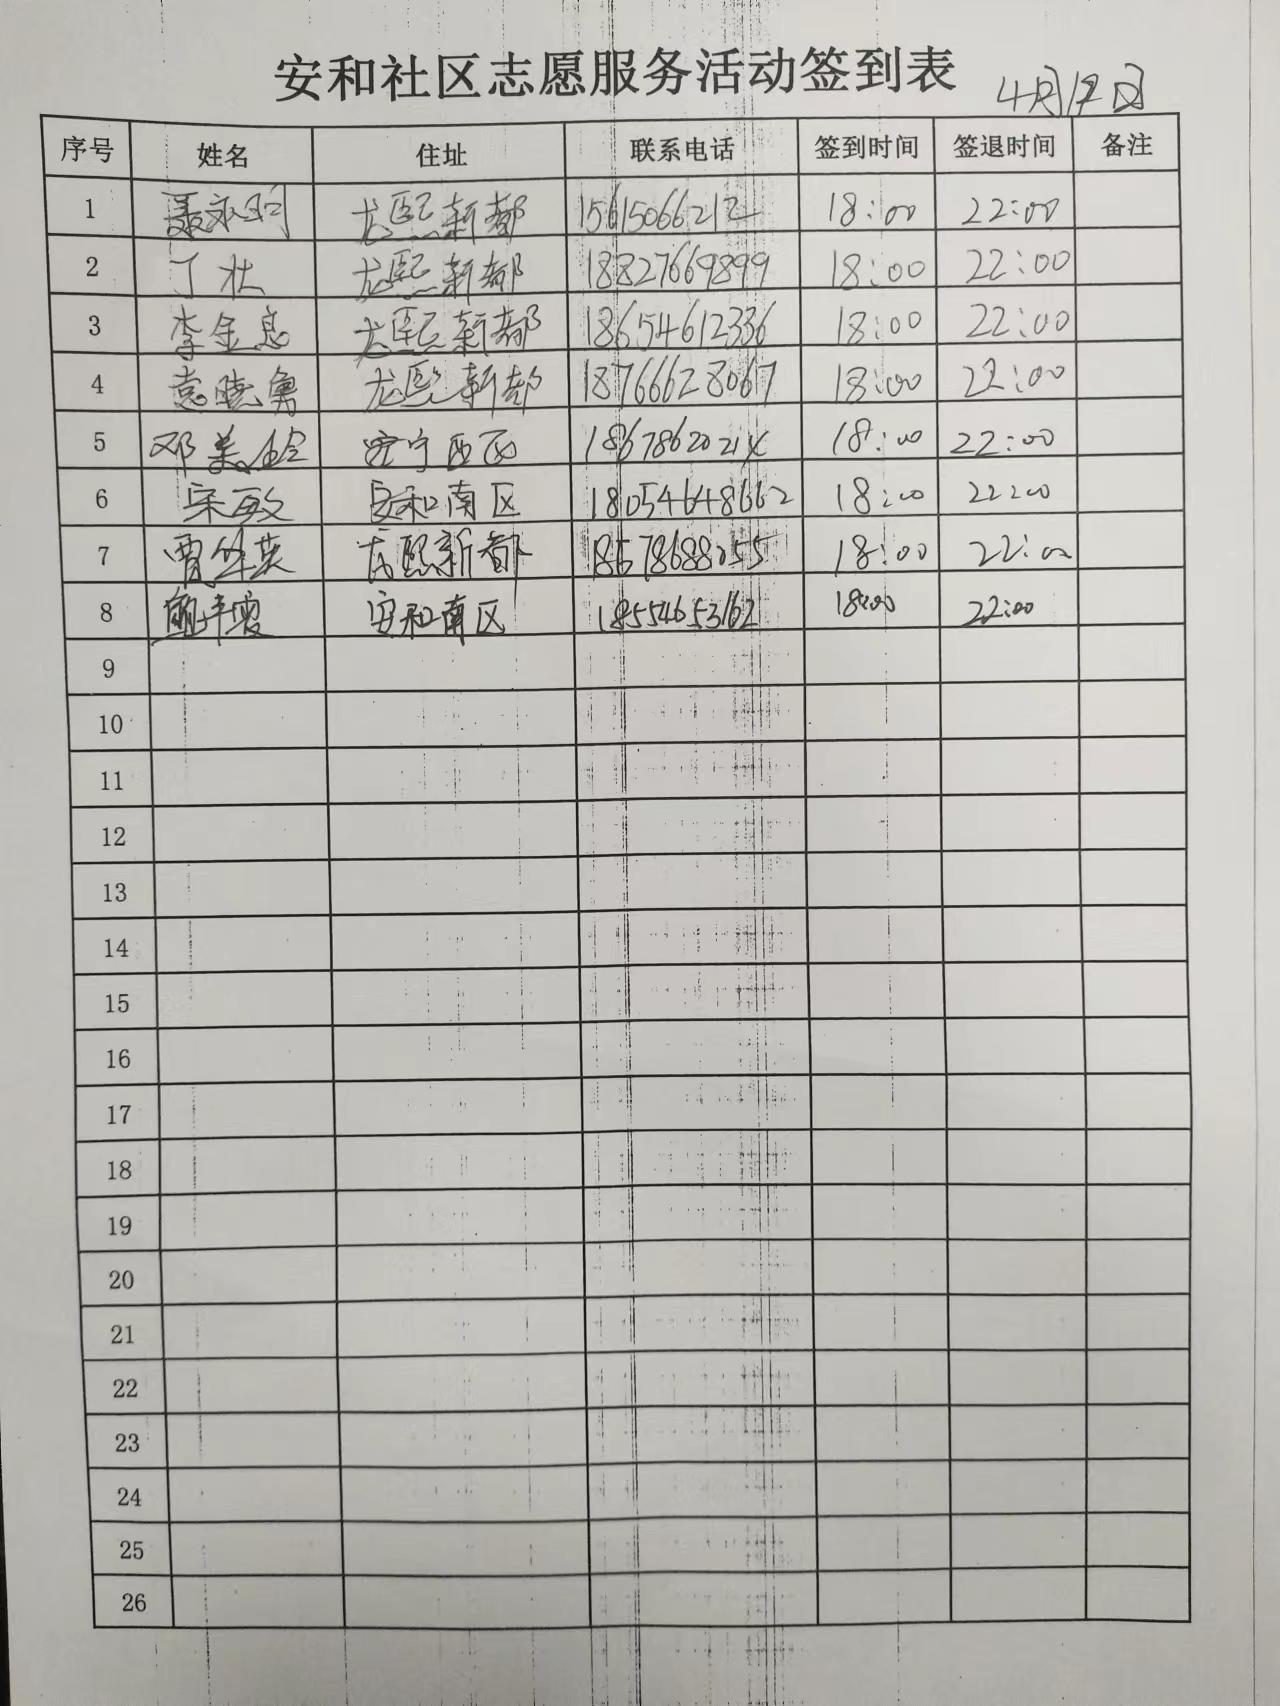 安和社区志愿服务活动签到表 4月12日
序号 姓名 住址 联系电话 签到时间 签退时间 备注
1 聂永珂 龙熙新都 15615066212 18:00 22:00
2 丁壮 龙熙新都 18827669899 18:00 22:00
3 李金息 龙熙新都 18654612336 18:00 22:00
4 袁晓勇 龙熙新都 18766628067 18:00 22:00
5 邓美玲 安宁西区 18:00 22:00
6 宋敏 安和南区 18054648662 18:00 22:00
7 龙熙新都 18678688055 18:00 22:00
8 安和南区 18554653162 18:00 22:00
9
10
11
12
13
14
15
16
17
18
19
20
21
22
23
24
25
26